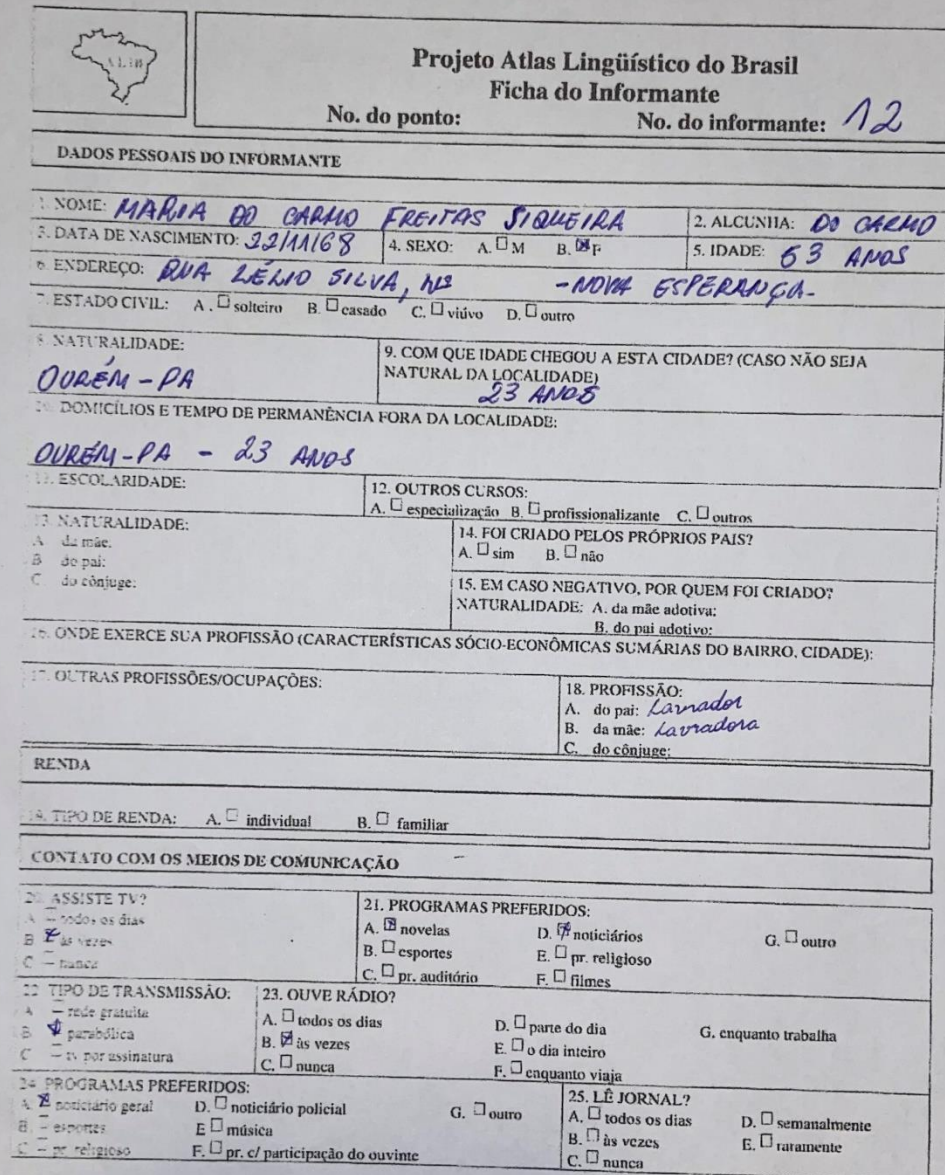 ALiB
Projeto Atlas Lingüístico do Brasil
Ficha do Informante
No. do ponto: No. do informante: 12
DADOS PESSOAIS DO INFORMANTE
1. NOME: MARIA DO CARMO FREITAS SIQUEIRA 2. ALCUNHA: DO CARMO
3. DATA DE NASCIMENTO: 22/11/68 4. SEXO: A. ☐ M B. ☒ F 5. IDADE: 53 ANOS
6. ENDEREÇO: RUA LÉLIO SILVA, Nº - NOVA ESPERANÇA-
7. ESTADO CIVIL: A. ☐ solteiro B. ☐ casado C. ☐ viúvo D. ☐ outro
8. NATURALIDADE:
OURÉM - PA
9. COM QUE IDADE CHEGOU A ESTA CIDADE? (CASO NÃO SEJA
NATURAL DA LOCALIDADE)
23 ANOS
10. DOMICÍLIOS E TEMPO DE PERMANÊNCIA FORA DA LOCALIDADE:
OURÉM-PA - 23 ANOS
11. ESCOLARIDADE:
12. OUTROS CURSOS:
A. ☐ especialização B. ☐ profissionalizante C. ☐ outros
13. NATURALIDADE:
A da mãe:
B do pai:
C. do cônjuge:
14. FOI CRIADO PELOS PRÓPRIOS PAIS?
A. ☐ sim B. ☐ não
15. EM CASO NEGATIVO, POR QUEM FOI CRIADO?
NATURALIDADE: A. da mãe adotiva:
B. do pai adotivo:
16. ONDE EXERCE SUA PROFISSÃO (CARACTERÍSTICAS SÓCIO-ECONÔMICAS SUMÁRIAS DO BAIRRO, CIDADE):
17. OUTRAS PROFISSÕES/OCUPAÇÕES:
18. PROFISSÃO:
A. do pai: Lavrador
B. da mãe: Lavradora
C. do cônjuge:
RENDA
19. TIPO DE RENDA: A. ☐ individual B. ☐ familiar
CONTATO COM OS MEIOS DE COMUNICAÇÃO
20. ASSISTE TV?
A ☐ todos os dias
B ☒ às vezes
C ☐ nunca
21. PROGRAMAS PREFERIDOS:
A. ☒ novelas D. ☒ noticiários G. ☐ outro
B. ☐ esportes E. ☐ pr. religioso
C. ☐ pr. auditório F. ☐ filmes
22 TIPO DE TRANSMISSÃO:
A ☐ rede gratuita
B. ☒ parabólica
C ☐ tv por assinatura
23. OUVE RÁDIO?
A. ☐ todos os dias D. ☐ parte do dia G. enquanto trabalha
B. ☒ às vezes E. ☐ o dia inteiro
C. ☐ nunca F. ☐ enquanto viaja
24 PROGRAMAS PREFERIDOS:
A. ☒ noticiário geral D. ☐ noticiário policial G. ☐ outro
B. ☐ esportes E ☐ música
C ☐ pr religioso F. ☐ pr. c/ participação do ouvinte
25. LÊ JORNAL?
A. ☐ todos os dias D. ☐ semanalmente
B. ☐ às vezes E. ☐ raramente
C. ☐ nunca